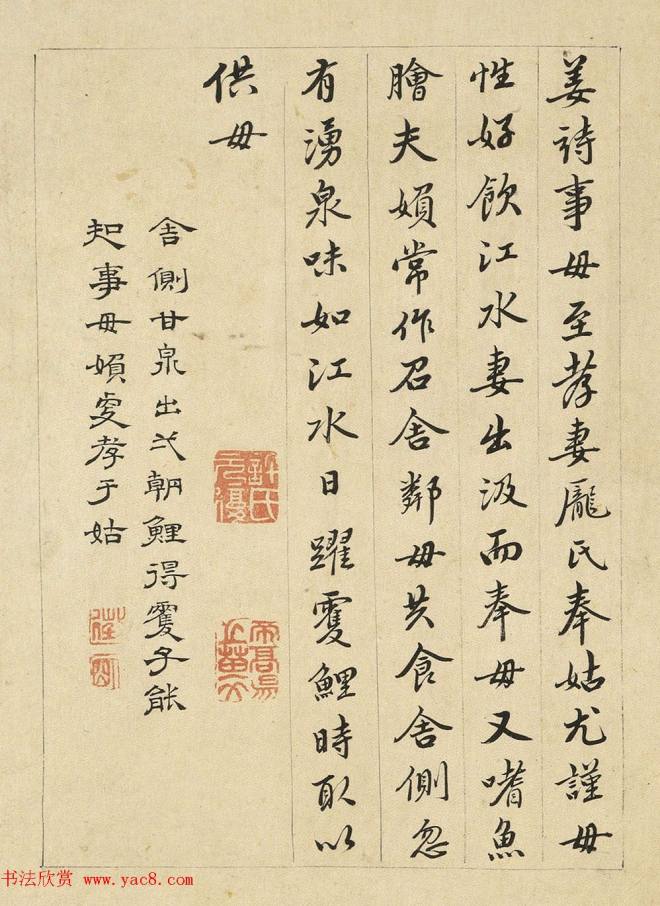 姜詩事母至孝妻龐氏奉姑尤謹母
性好飲江水妻出汲而奉母又嗜魚
膾夫婦常作召舍鄰母共食舍側忽
有湧泉味如江水日躍雙鯉時取以
供母
舍側甘泉出一朝鯉得雙子能
知事母婦更孝于姑
許氏
书法欣赏 www.yac8.com